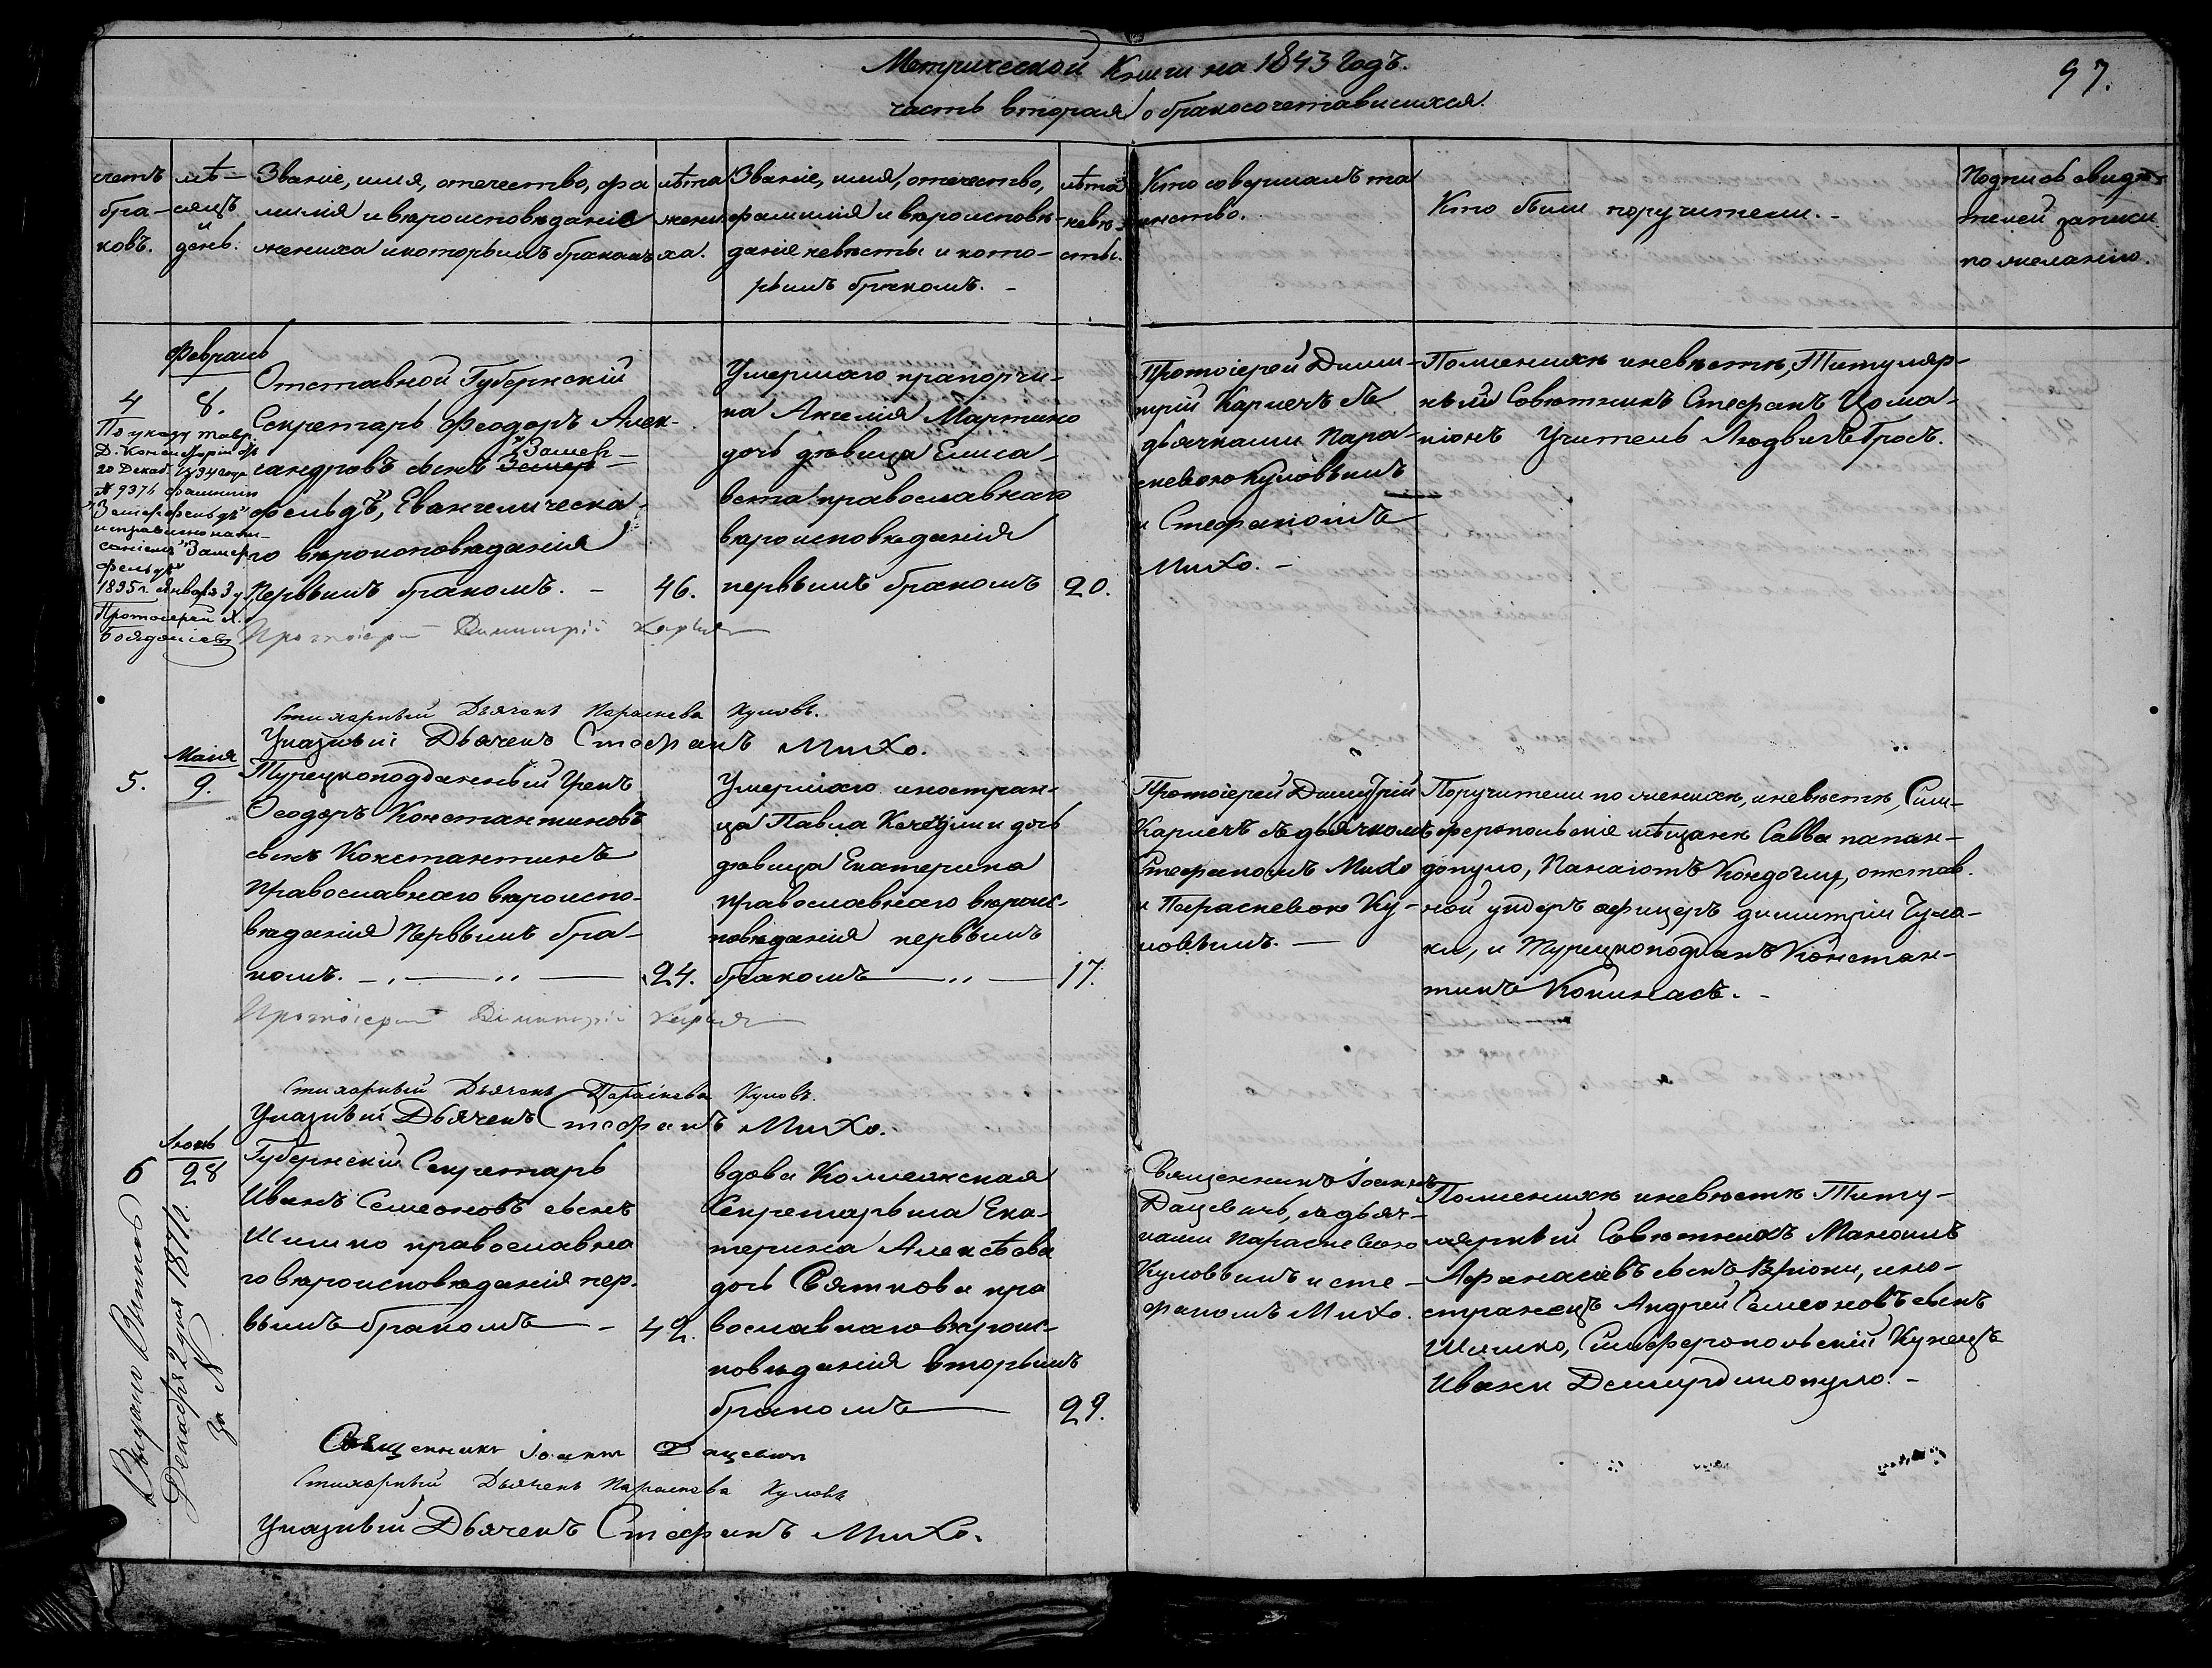 Метрической Книги на 1843 годъ.
97.
часть вторая о бракосочетавшихся.
счетъ бра-
ковъ.
мѣ-
сяцъ
и
день.
Званіе, имя, отечество, фа
милія и вѣроисповѣданіе
жениха и которымъ бракомъ
лѣта
жени
ха.
Званіе, имя, отечество,
фамилія и вѣроисповѣ-
даніе невѣсты и кото-
рымъ бракомъ. -
лѣта
невѣ-
сты.
Кто совершалъ та
инство.
Кто были поручители. -
Подпись свидѣ-
телей записи
по желанію.
Февраль
4
8.
По указу Тавр.
Д. Консисторіи отъ
20 Декаб. 1894 года
№ 9376 фамилія
"Земерфельдъ"
исправлено напи-
саніемъ "Замер
фельдъ"
1895 г. Января 3 д
Протоіерей А.
Отставной Губернскій
Секретарь Феодоръ Алек-
сандровъ сынъ "Замер-
фельдъ", Евангелическа-
го вѣроисповѣданія
Первымъ бракомъ. -
46.
Умершаго прапорщи-
ка Алексія Мартино
дочь дѣвица Елиса-
вета православнаго
вѣроисповѣданія
первымъ бракомъ
20.
Протоіерей Дими-
трій Карпечъ съ
дьячками Пара-
скевою Куловымъ
и Стефаномъ
Михо. -
По женихѣ и невѣстѣ, Титуляр-
ный Совѣтникъ Стефанъ Цома-
кіонъ Учитель Людвигъ Гросъ.
Протоіерей Димитрій
Стихарный Дьячекъ Параскева Куловъ.
Указный Дьячекъ Стефанъ Михо.
Маія
5.
9.
Турецкоподданный Грекъ
Ѳеодоръ Константиновъ
сынъ Константинъ
Православнаго вѣроиспо-
вѣданія Первымъ бра-
комъ. - " - " -
24.
Умершаго иностран-
ца Павла дочь
дѣвица Екатерина
православнаго вѣроис-
повѣданія первымъ
бракомъ - " -
17.
Протоіерей Димитрій
Карпечъ съ дьячкомъ
Стефаномъ Михо
и Параскевою Ку-
ловымъ. -
Поручители по женихѣ, и невѣстѣ, Сим-
феропольскіе мѣщане Савва Папан-
допуло, Панаіотъ Кондогли, отстав.
ной ундеръ афицеръ Димитрій
ки, и Турецкоподданъ Констан-
тинъ Коминасъ. -
Протоіерей Димитрій
Стихарный Дьячекъ Параскева Куловъ.
Указный Дьячекъ Стефанъ Михо.
Іюнь
6
28
Выдано
Декабря 2 дня 1871 г.
За №
Губернскій Секретарь
Иванъ Семеоновъ сынъ
Шишко православна
го вѣроисповѣданія пер-
вымъ бракомъ -
42.
вдова Коллежская
Секретарьша Ека-
терина Алексѣева
дочь Святкова пра
вославнаго вѣроис-
повѣданія вторымъ
бракомъ
29.
Священникъ Іоаннъ
Дацевичь, съ дьяч-
ками Параскевою
Куловымъ и Сте-
фаномъ Михо.
По женихѣ и невѣстѣ Титу-
лярный Совѣтникъ Мануилъ
Афанасіевъ сынъ Вріони, ино-
странецъ Андрей Семеоновъ сынъ
Шишко, Симферопольскій Купецъ
Ивани -
Священникъ Іоаннъ Дацевичь
Стихарный Дьячекъ Параскева Куловъ
Указный Дьячекъ Стефанъ Михо.